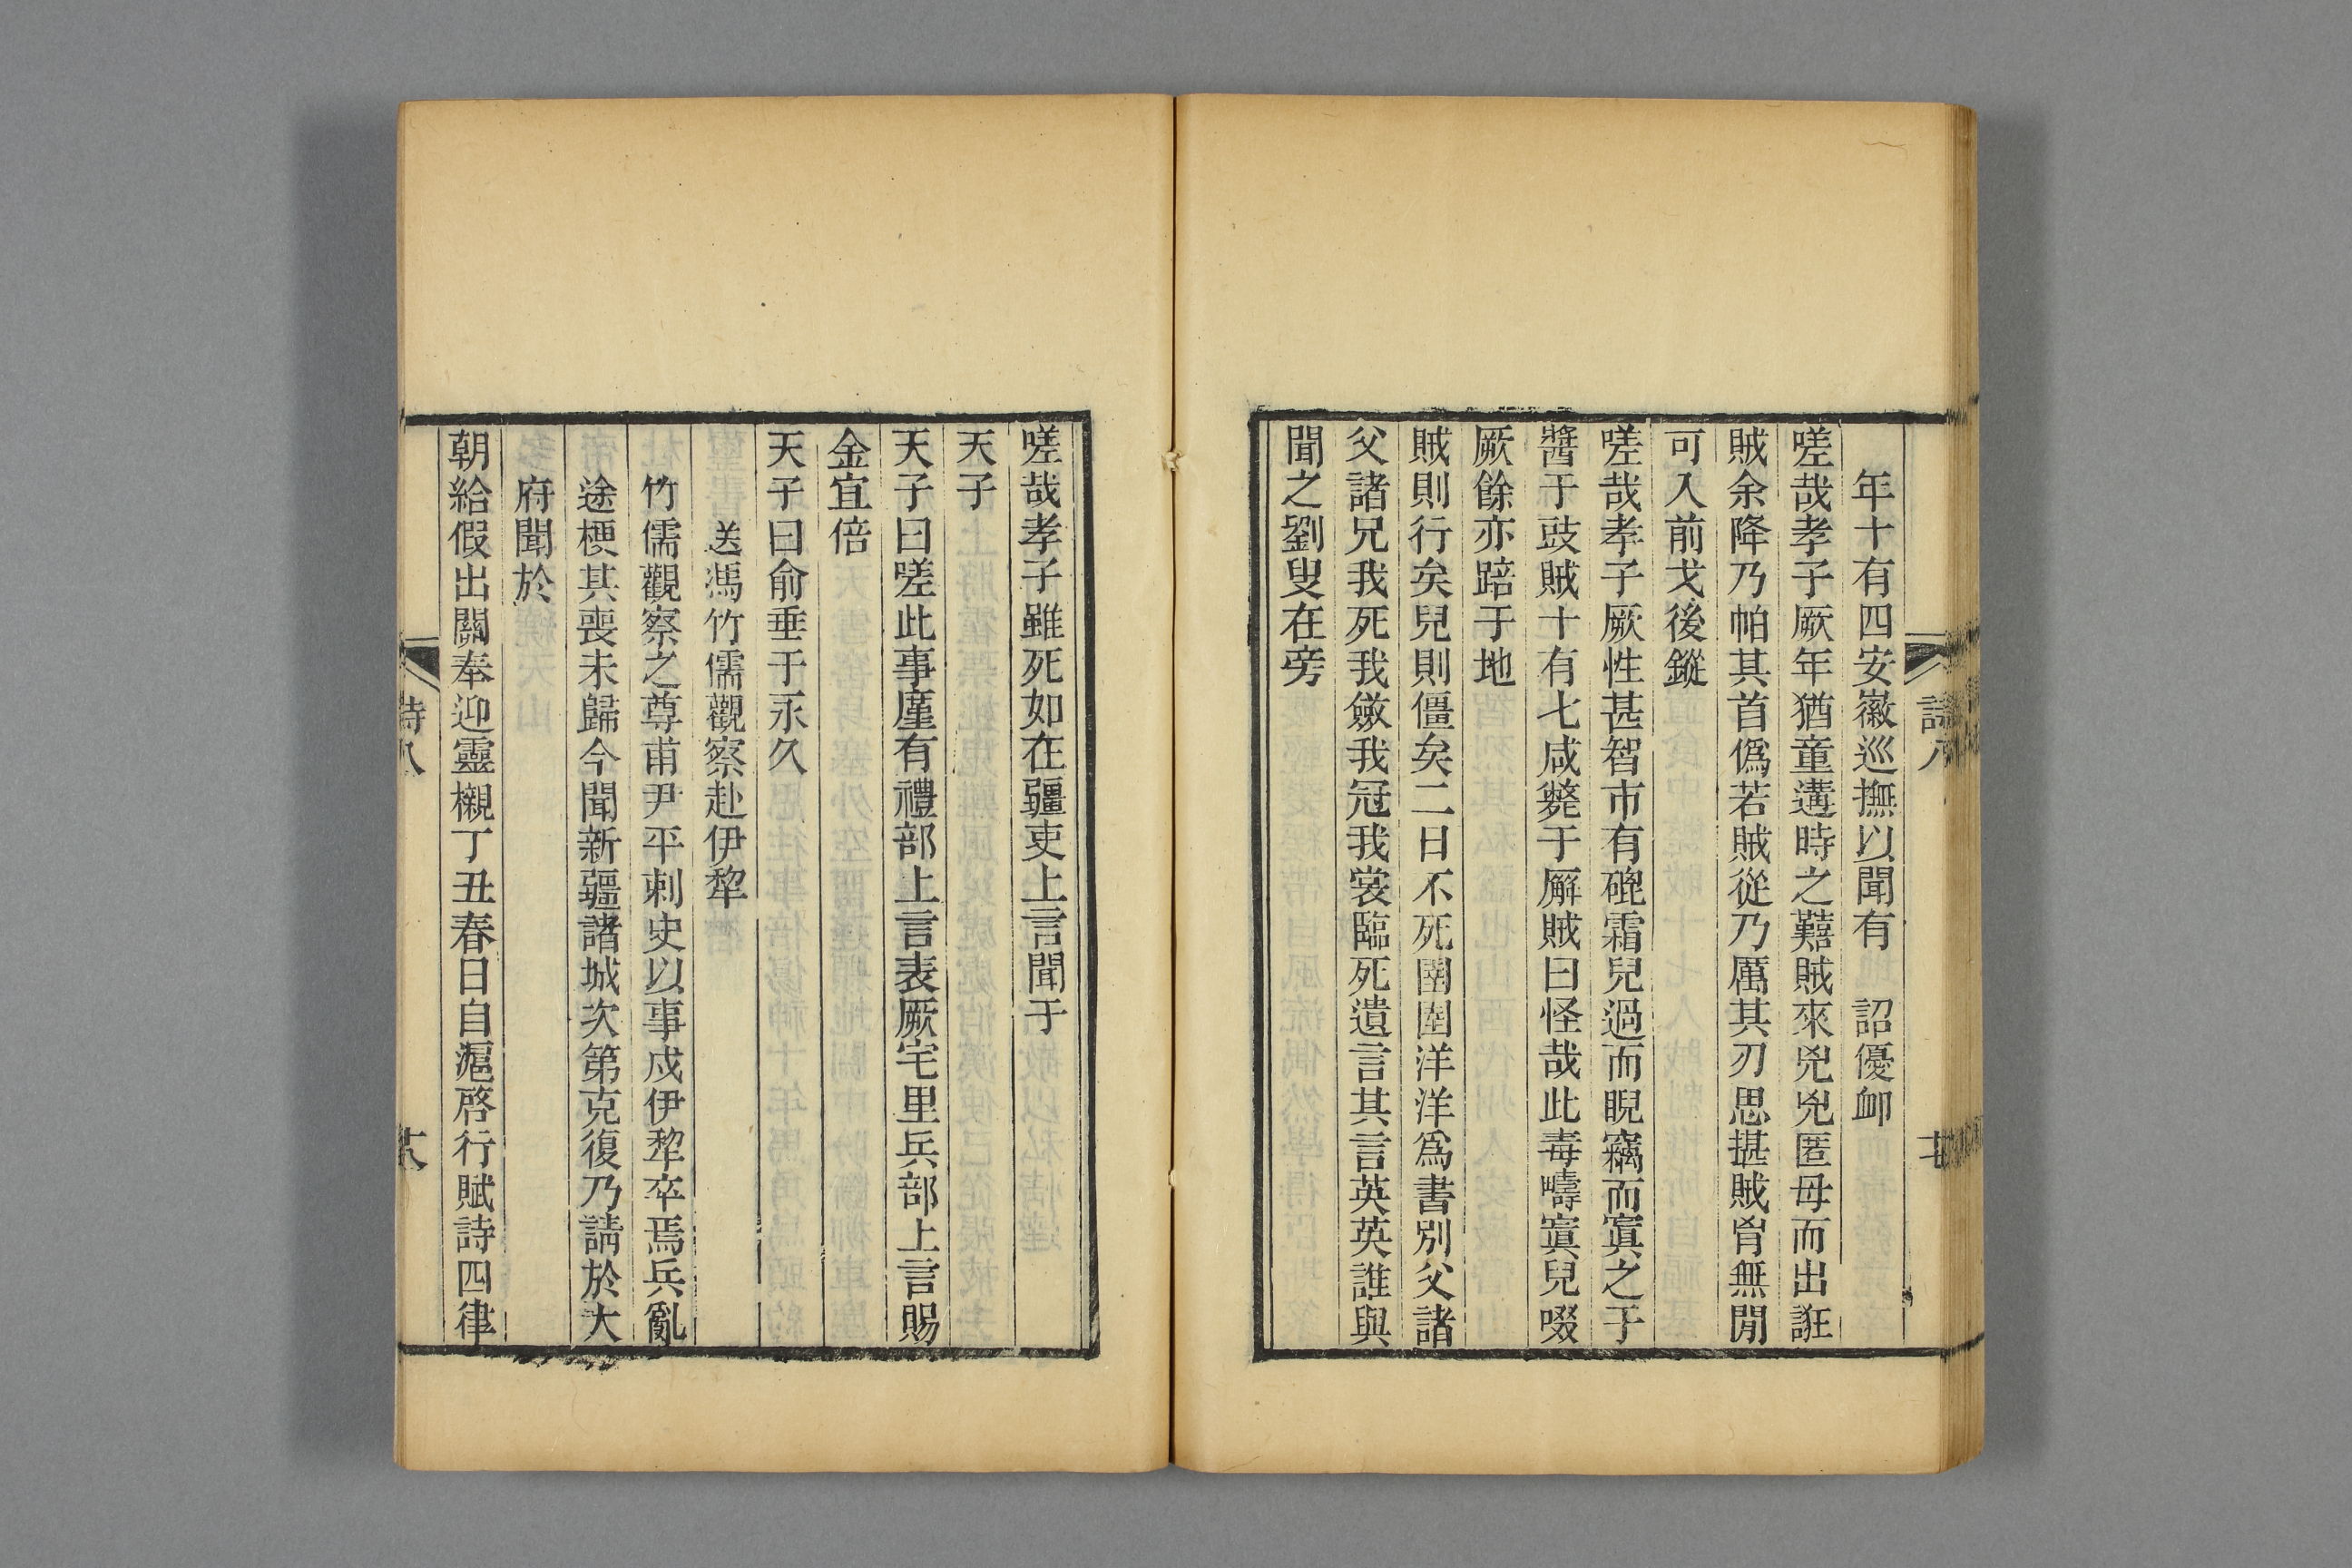 年十有四安徽巡撫以聞有　詔優卹
嗟哉孝子厥年猶童遘時之囏賊來兇兇匿母而出誑
賊余降乃帕其首僞若賊從乃厲其刃思揕賊胷無閒
可入前戈後鏦
嗟哉孝子厥性甚智市有磇霜兒過而睨竊而寘之于
醬于豉賊十有七咸斃于廨賊曰怪哉此毒疇寘兒啜
厥餘亦踣于地
賊則行矣兒則僵矣二日不死圉圉洋洋爲書別父諸
父諸兄我死我斂我冠我裳臨死遺言其言英英誰與
聞之劉叟在旁
詩八
嗟哉孝子雖死如在疆吏上言聞于
天子
天子曰嗟此事廑有禮部上言表厥宅里兵部上言賜
金宜倍
天子曰俞垂于永久
送馮竹儒觀察赴伊犂
竹儒觀察之尊甫尹平刺史以事戍伊犂卒焉兵亂
途梗其喪未歸今聞新疆諸城次第克復乃請於大
府聞於
朝給假出關奉迎靈櫬丁丑春日自滬啓行賦詩四律
詩八